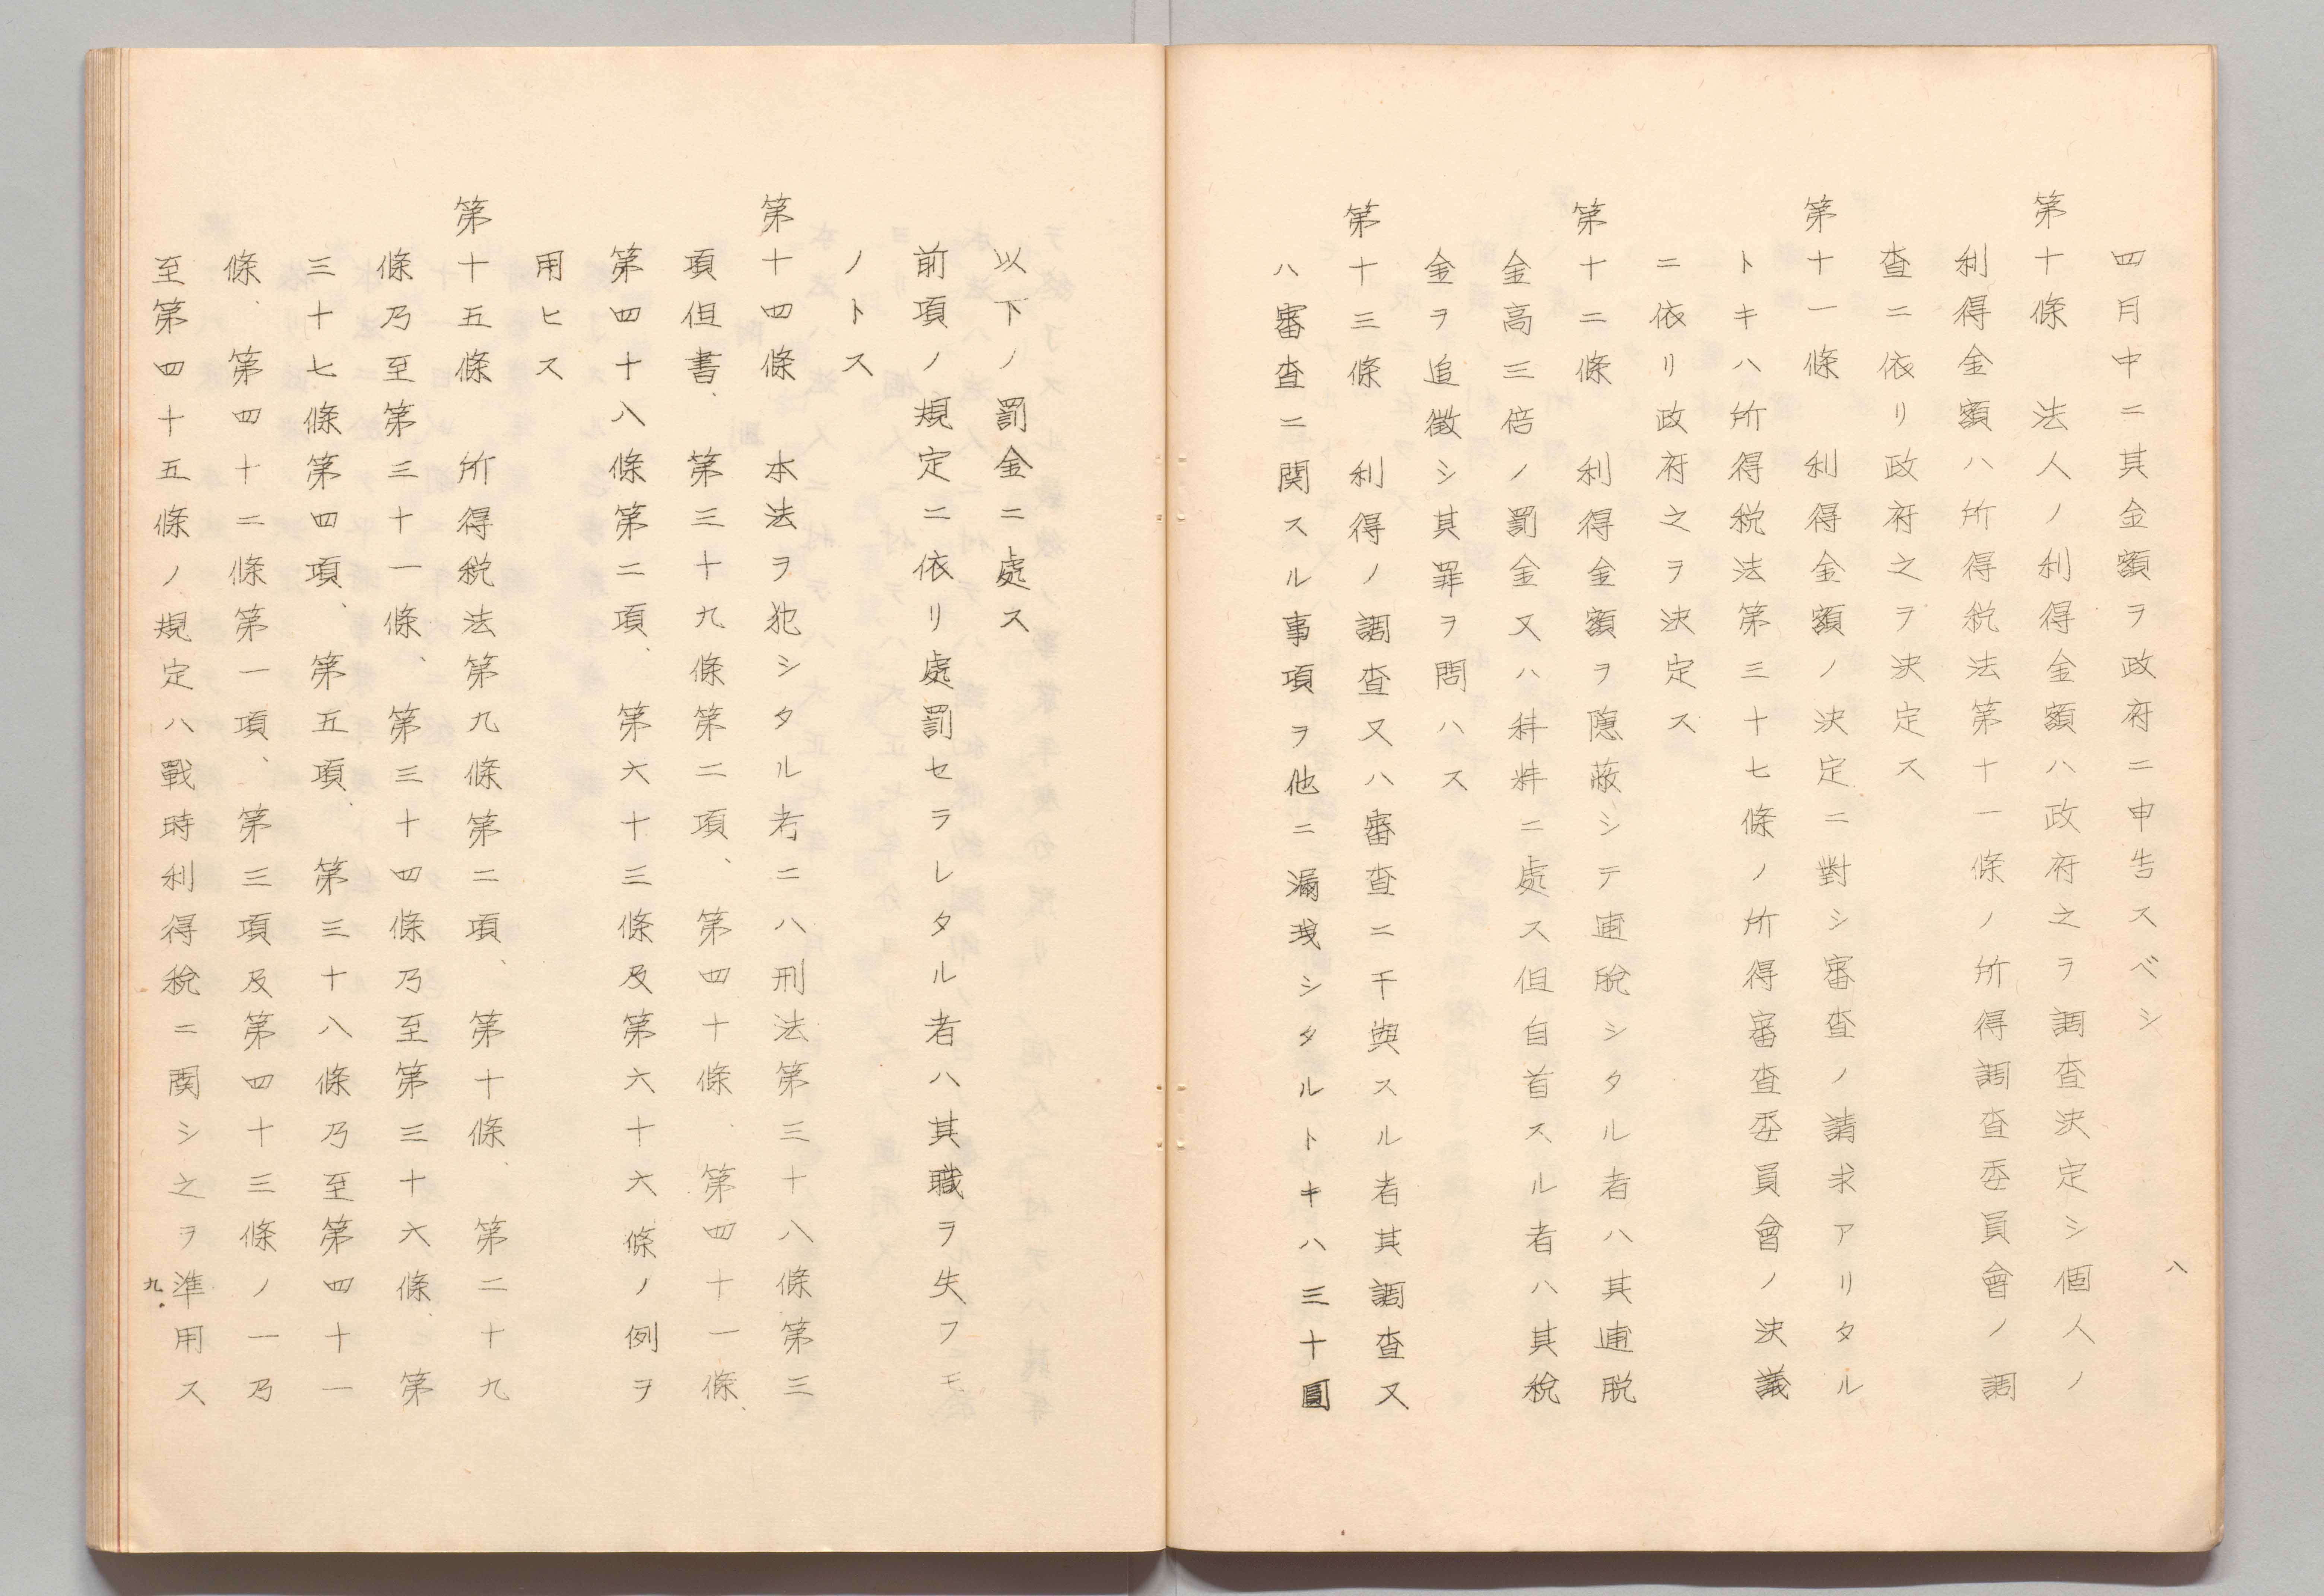 四月中ニ其金額ヲ政府ニ申告スベシ
第十條　法人ノ利得金額ハ政府之ヲ調査決定シ個人ノ
利得金額ハ所得税法第十一條ノ所得調査委員會ノ調
査ニ依リ政府之ヲ決定ス
第十一條　利得金額ノ決定ニ對シ審査ノ請求アリタル
トキハ所得税法第三十七條ノ所得審査委員會ノ決議
ニ依リ政府之ヲ決定ス
第十二條　利得金額ヲ隱蔽シテ逋脱シタル者ハ其逋脱
金高三倍ノ罰金又ハ科料ニ處ス但自首スル者ハ其税
金ヲ追徴シ其罪ヲ問ハス
第十三條　利得ノ調査又ハ審査ニ干與スル者其調査又
ハ審査ニ関スル事項ヲ他ニ漏洩シタルトキハ三十圓
八
以下ノ罰金ニ處ス
前項ノ規定ニ依リ處罰セラレタル者ハ其職ヲ失フモ
ノトス
第十四條　本法ヲ犯シタル者ニハ刑法第三十八條第三
項但書、第三十九條第二項、第四十條、第四十一條、
第四十八條第二項、第六十三條及第六十六條ノ例ヲ
用ヒス
第十五條　所得税法第九條第二項、第十條、第二十九
條乃至第三十一條、第三十四條乃至第三十六條、第
三十七條第四項、第五項、第三十八條乃至第四十一
條、第四十二條第一項、第三項及第四十三條ノ一乃
至第四十五條ノ規定ハ戰時利得税ニ関シ之ヲ準用ス
九